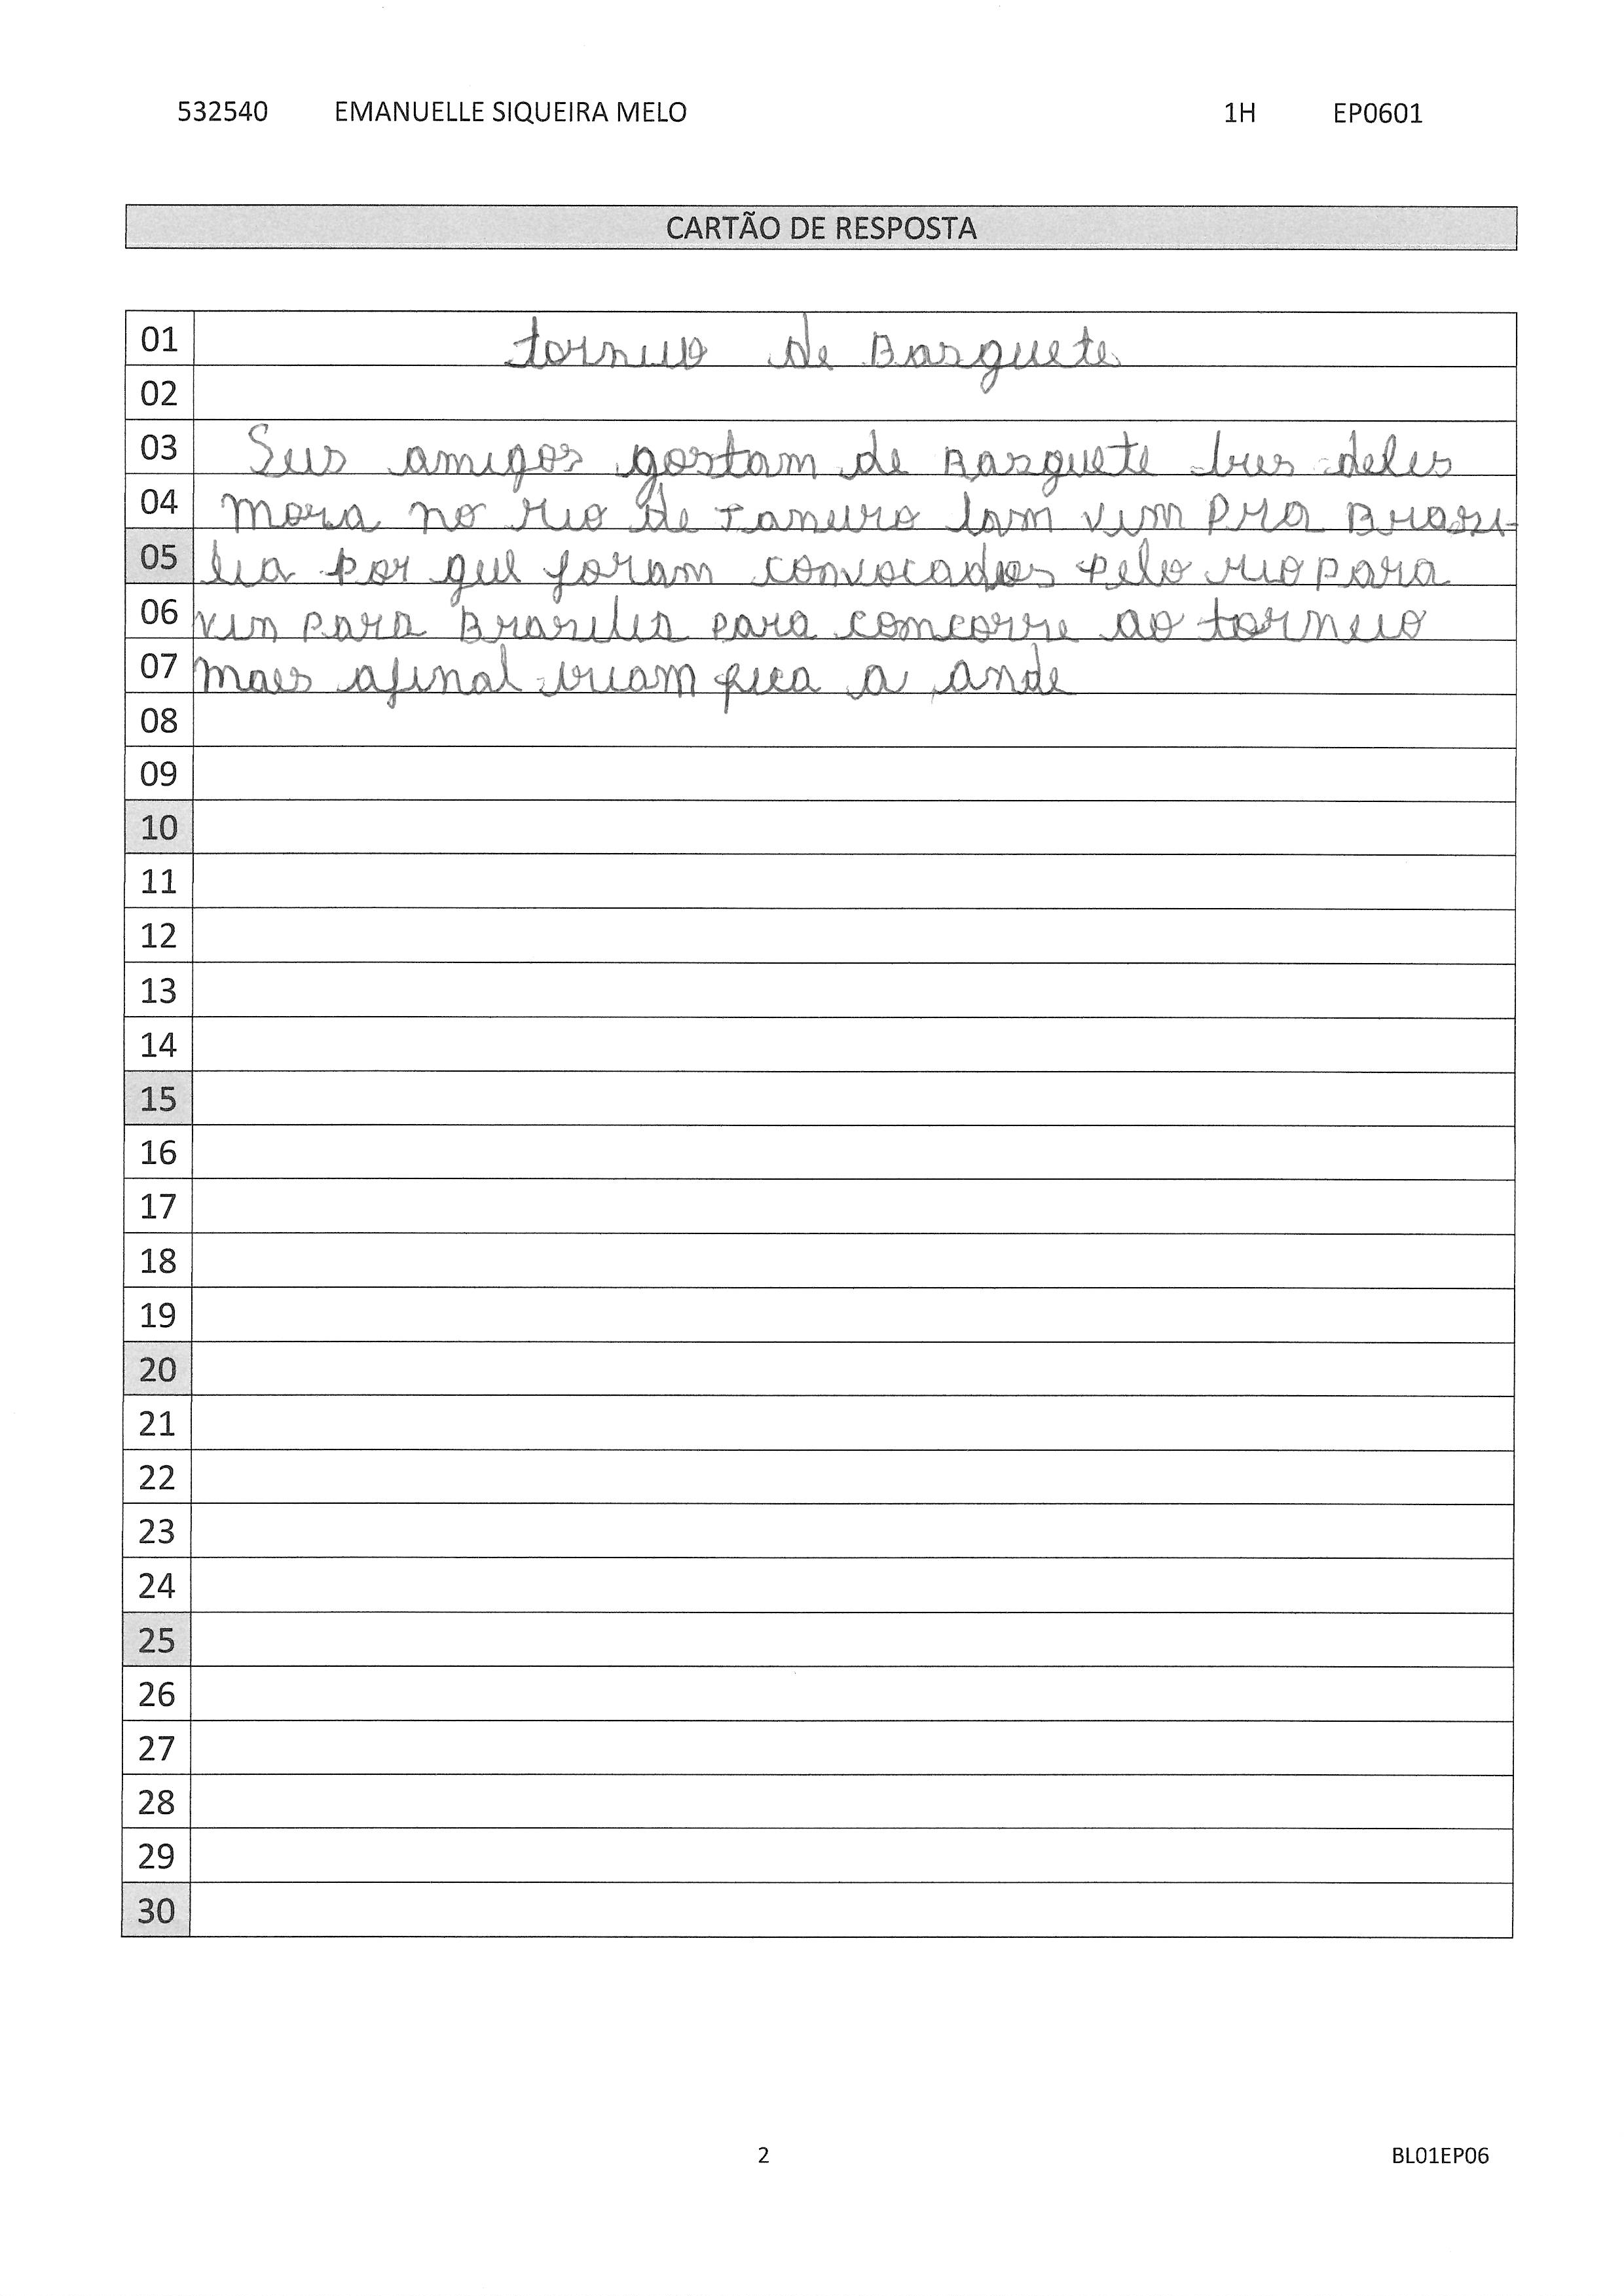 532540 EMANUELLE SIQUEIRA MELO 1H EP0601
CARTÃO DE RESPOSTA
01 torneio de Basquete
02
03 Seis amigos gostam de Basquete tres deles
04 mora no rio de Janeiro vim pra Brasi-
05 lia por que foram convocados pelo rio para
06 vim para Brasilia para concorre ao torneio
07 mais afinal iriam fica a onde
08
09
10
11
12
13
14
15
16
17
18
19
20
21
22
23
24
25
26
27
28
29
30
2 BL01EP06